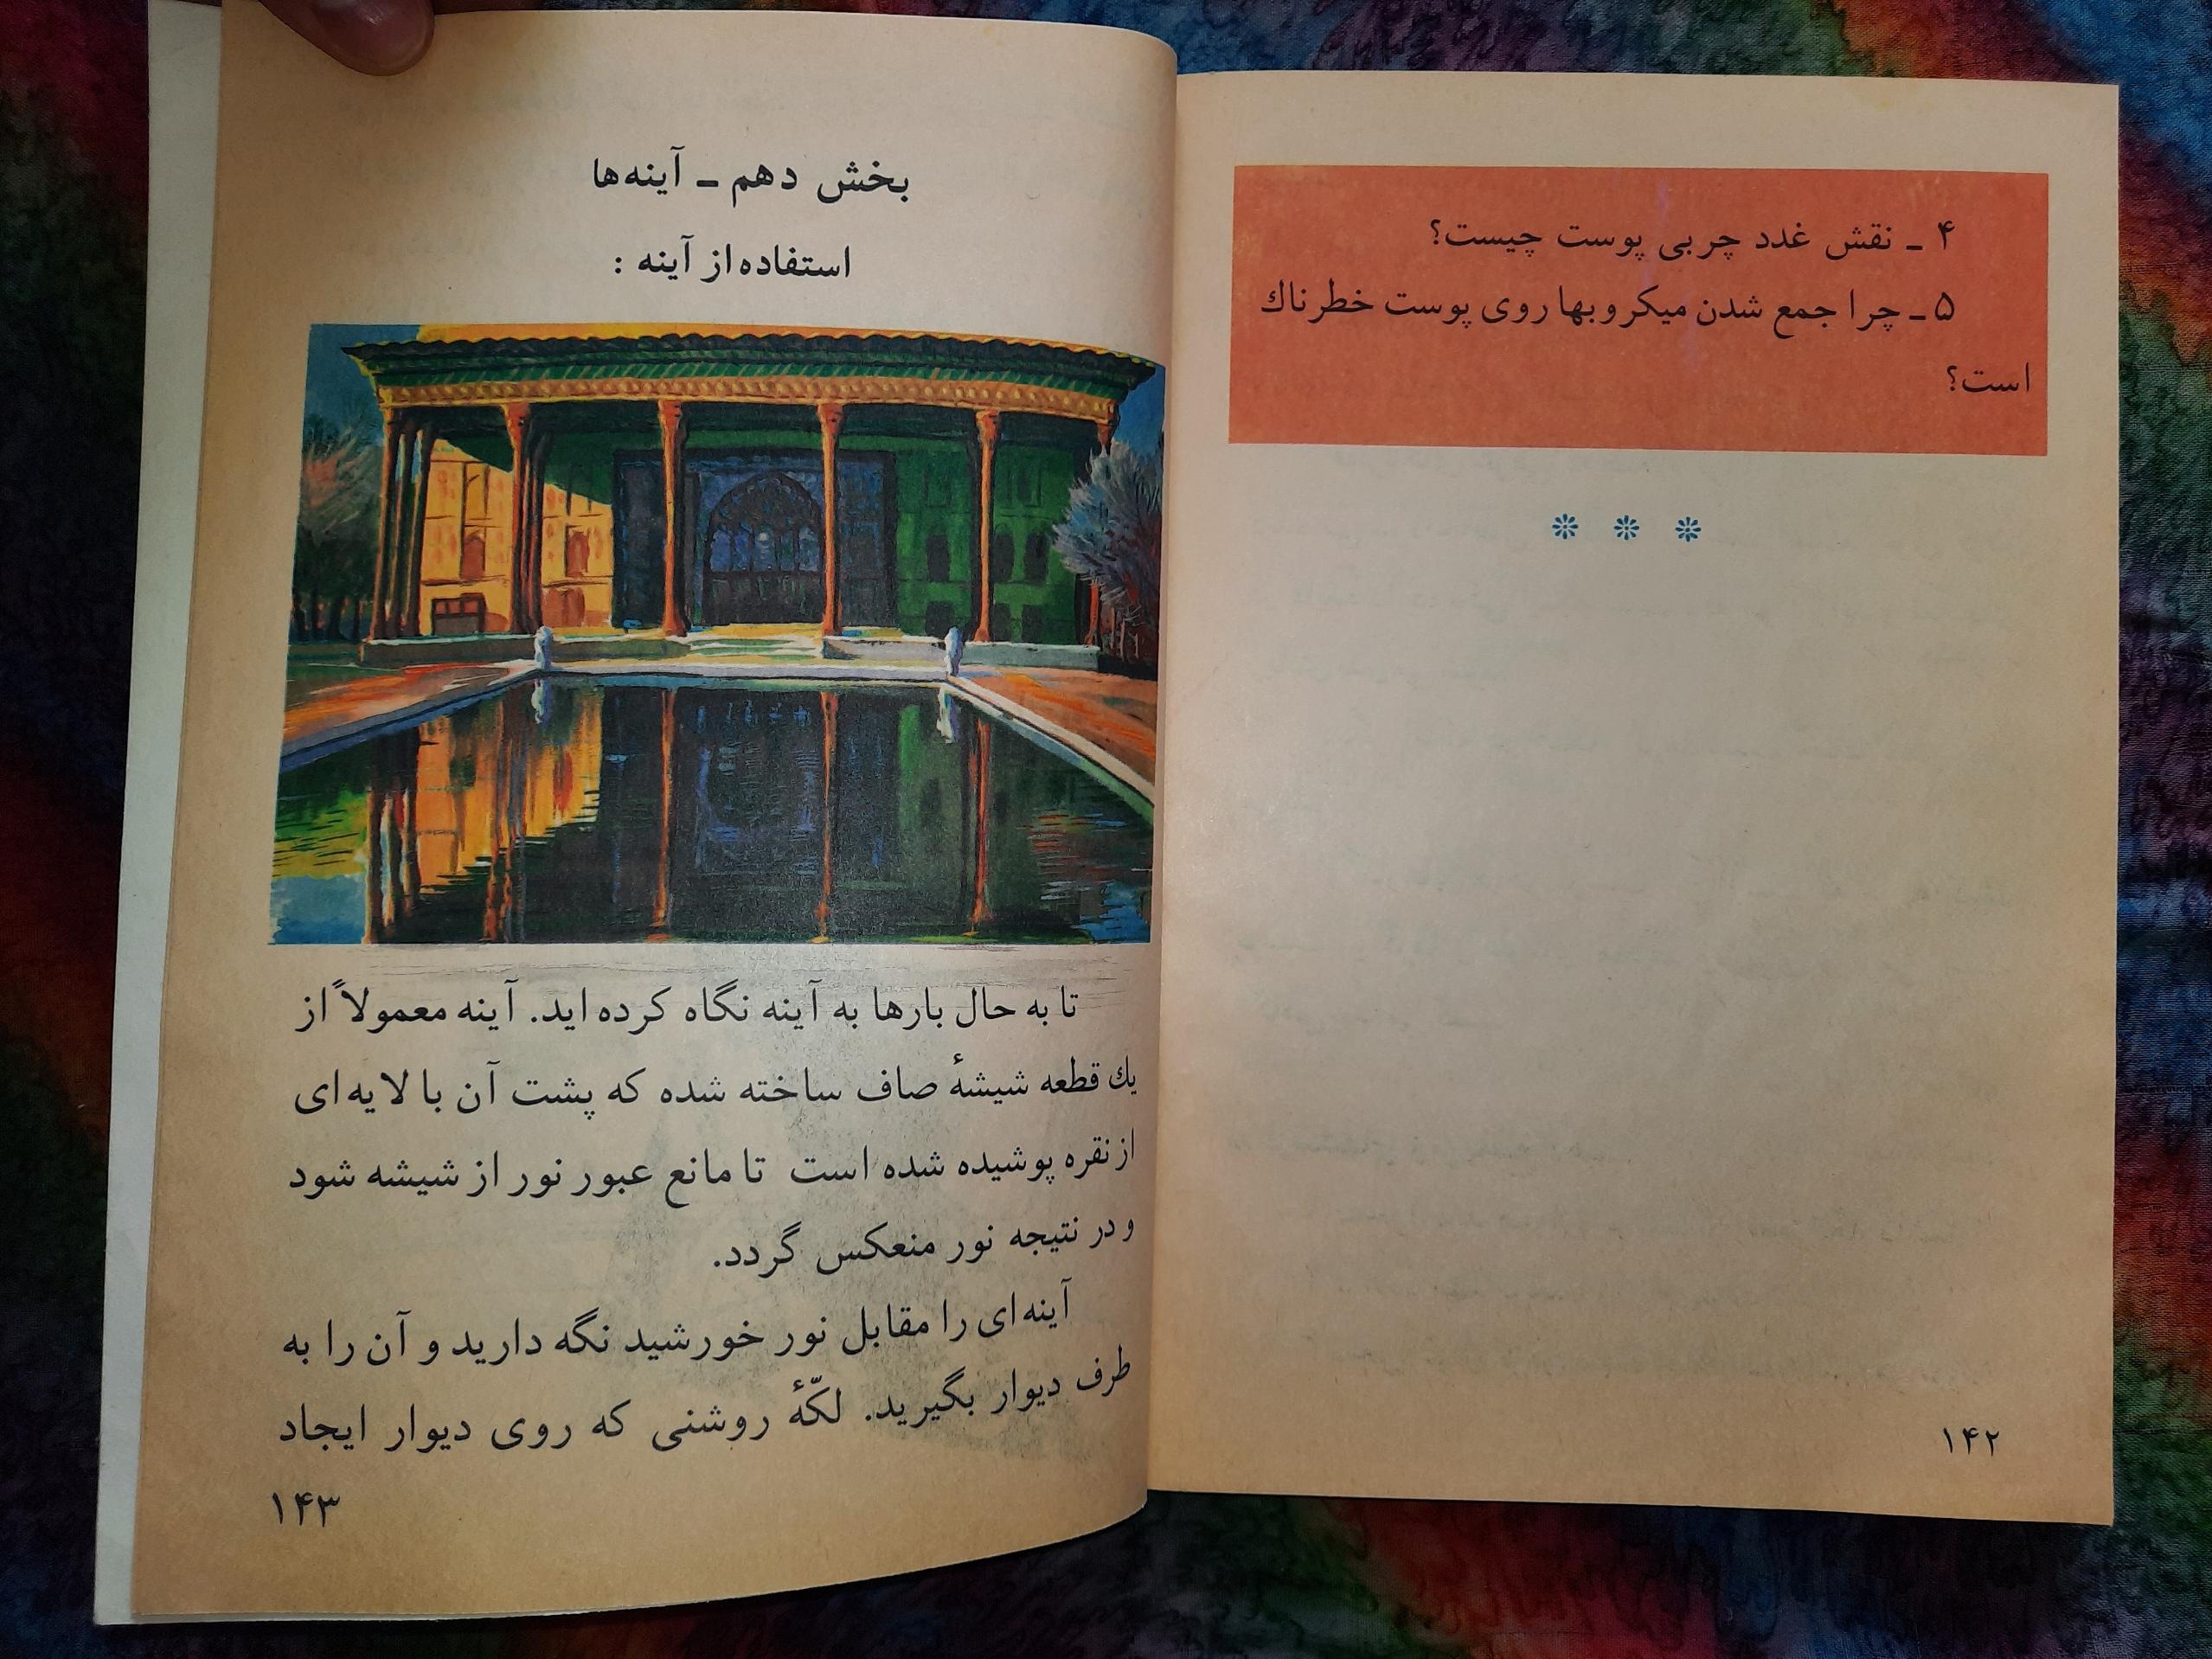 ۴ ـ نقش غدد چربی پوست چیست؟
۵ ـ چرا جمع شدن میکروبها روی پوست خطرناك
است؟
۱۴۲
بخش دهم ـ آینه‌ها
استفاده از آینه :
تا به حال بارها به آینه نگاه کرده‌اید. آینه معمولاً از
یك قطعه شیشهٔ صاف ساخته شده که پشت آن با لایه‌ای
از نقره پوشیده شده است تا مانع عبور نور از شیشه شود
و در نتیجه نور منعکس گردد.
آینه‌ای را مقابل نور خورشید نگه دارید و آن را به
طرف دیوار بگیرید. لکّهٔ روشنی که روی دیوار ایجاد
۱۴۳